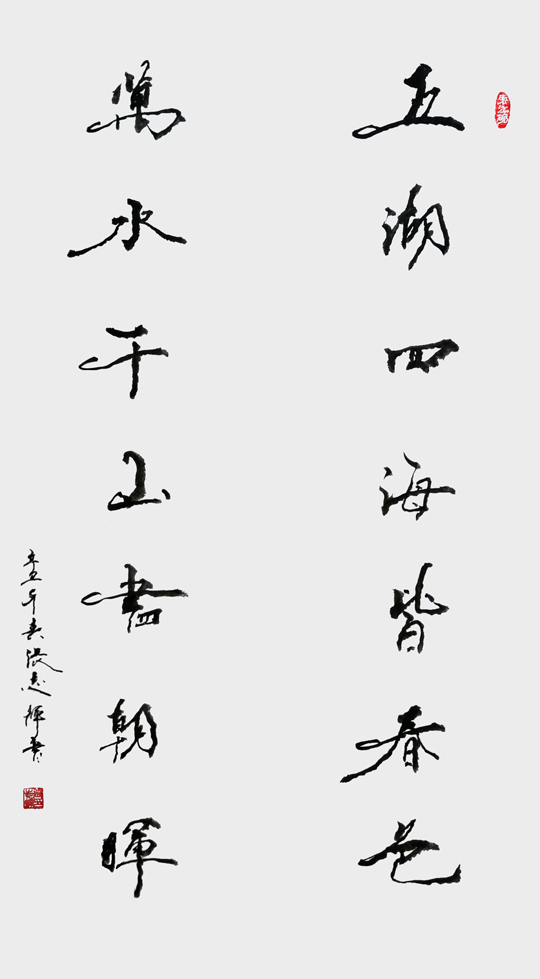 五湖四海皆春色
萬水千山盡朝暉
辛丑年春張志輝書